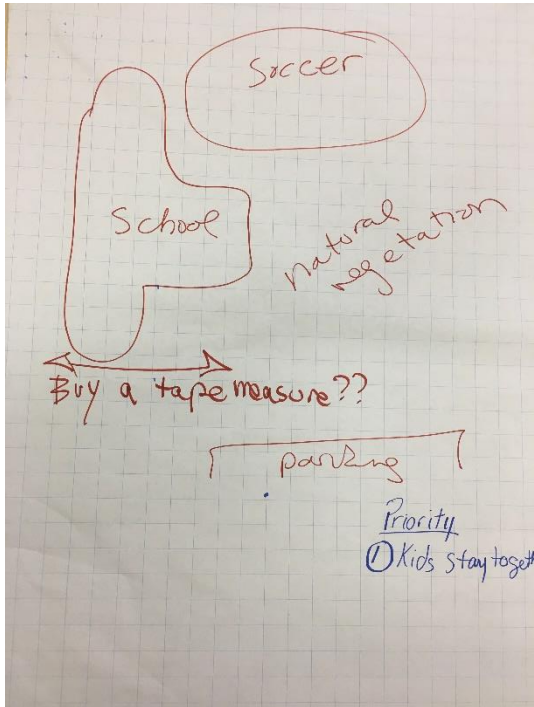 Soccer
School
natural
vegetation
Buy a tape measure??
parking
Priority
① Kids stay togeth